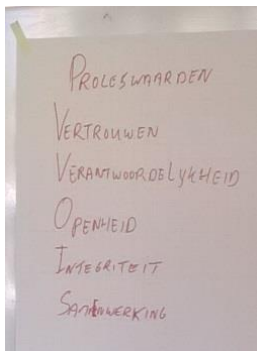 PROCESWAARDEN
VERTROUWEN
VERANTWOORDELYKHEID
OPENHEID
INTEGRITEIT
SAMENWERKING